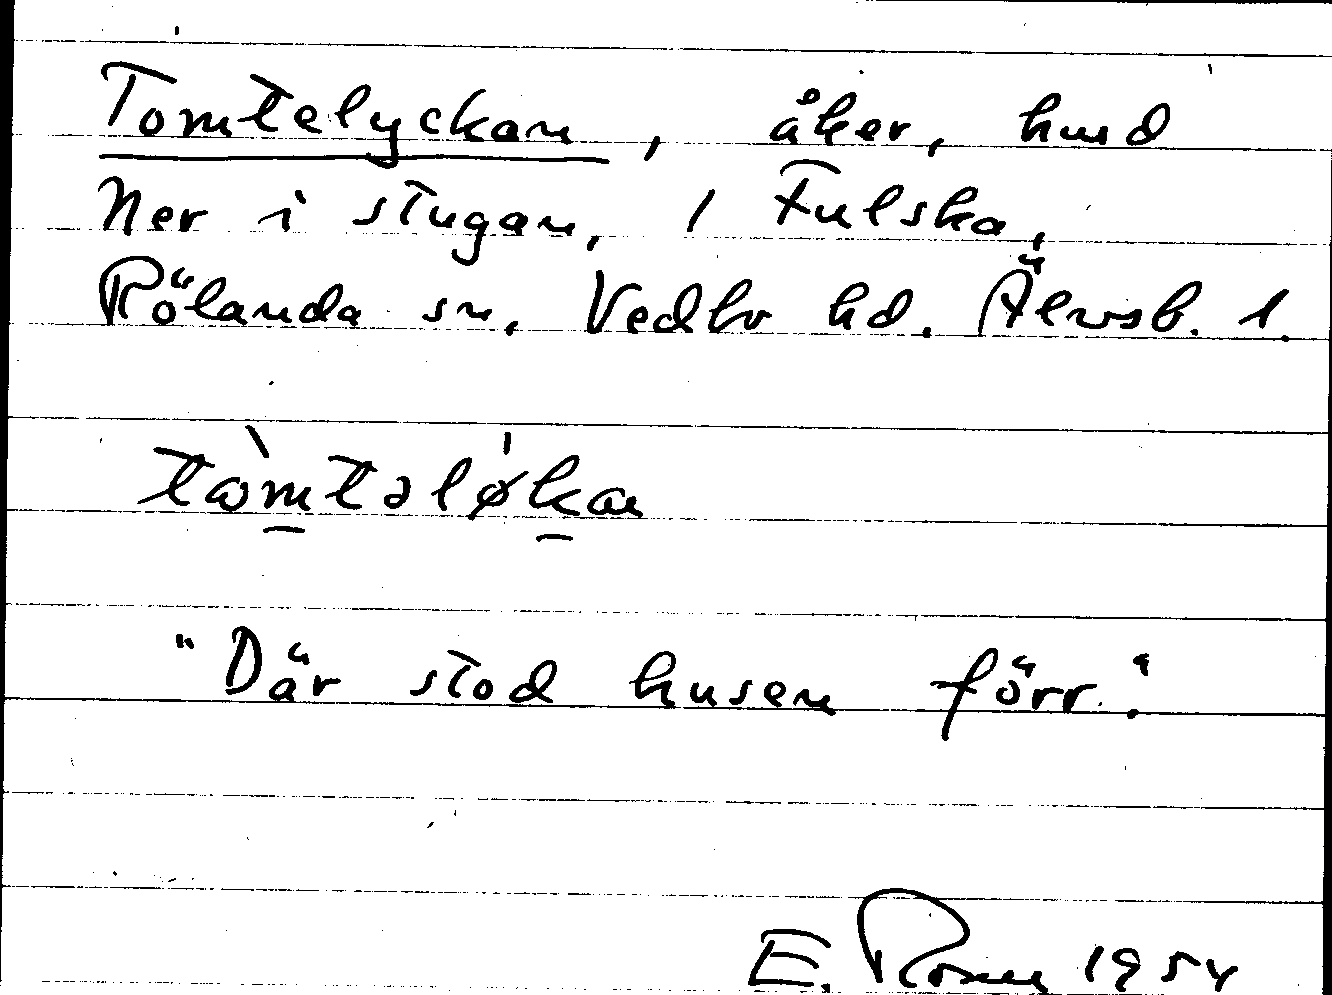 Tomtelyckan, åker, hmd
Ner i stugan, 1 Fulska,
Rölanda sn, Vedbo hd. Älvsb. l.
tɷ̀m̲tələ̸k̲an
"Där stod husen förr."
E. 1954